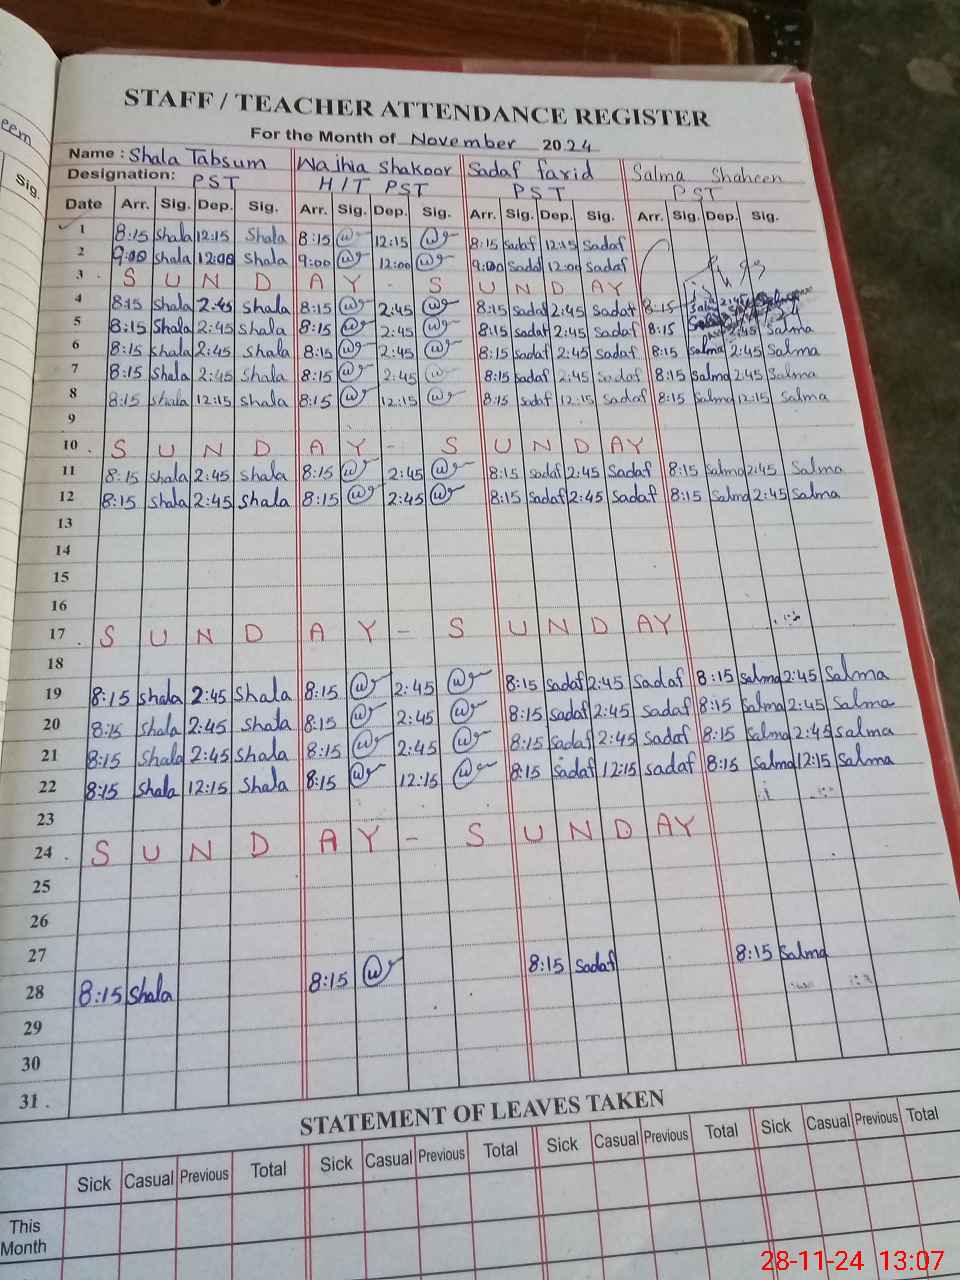 eem
Sig.
STAFF / TEACHER ATTENDANCE REGISTER
For the Month of November 2024
Name : Shala Tabsum Wajhia Shakoor Sadaf farid Salma Shaheen
Designation: PST HIT PST PST PST
Date Arr. Sig. Dep. Sig. Arr. Sig. Dep. Sig. Arr. Sig. Dep. Sig. Arr. Sig. Dep. Sig.
1 8:15 Shala 12:15 Shala 8:15 12:15 8:15 Sadaf 12:15 Sadaf
2 9:00 Shala 12:00 Shala 9:00 12:00 9:00 Sadaf 12:00 Sadaf
3 . S U N D A Y - S U N D A Y
4 8:15 Shala 2:45 Shala 8:15 2:45 8:15 Sadaf 2:45 Sadaf 8:15
5 8:15 Shala 2:45 Shala 8:15 2:45 8:15 Sadaf 2:45 Sadaf 8:15 2:45 Salma
6 8:15 Shala 2:45 Shala 8:15 2:45 8:15 Sadaf 2:45 Sadaf 8:15 Salma 2:45 Salma
7 8:15 Shala 2:45 Shala 8:15 2:45 8:15 Sadaf 2:45 Sadaf 8:15 Salma 2:45 Salma
8 8:15 Shala 12:15 Shala 8:15 12:15 8:15 Sadaf 12:15 Sadaf 8:15 Salma 12:15 Salma
9
10 . S U N D A Y - S U N D A Y
11 8:15 Shala 2:45 Shala 8:15 2:45 8:15 Sadaf 2:45 Sadaf 8:15 Salma 2:45 Salma
12 8:15 Shala 2:45 Shala 8:15 2:45 8:15 Sadaf 2:45 Sadaf 8:15 Salma 2:45 Salma
13
14
15
16
17 . S U N D A Y - S U N D A Y
18
19 8:15 Shala 2:45 Shala 8:15 2:45 8:15 Sadaf 2:45 Sadaf 8:15 Salma 2:45 Salma
20 8:15 Shala 2:45 Shala 8:15 2:45 8:15 Sadaf 2:45 Sadaf 8:15 Salma 2:45 Salma
21 8:15 Shala 2:45 Shala 8:15 2:45 8:15 Sadaf 2:45 Sadaf 8:15 Salma 2:45 Salma
22 8:15 Shala 12:15 Shala 8:15 12:15 8:15 Sadaf 12:15 Sadaf 8:15 Salma 12:15 Salma
23
24 . S U N D A Y - S U N D A Y
25
26
27
28 8:15 Shala 8:15 8:15 Sadaf 8:15 Salma
29
30
31 .
STATEMENT OF LEAVES TAKEN
Sick Casual Previous Total Sick Casual Previous Total Sick Casual Previous Total Sick Casual Previous Total
This
Month
28-11-24 13:07